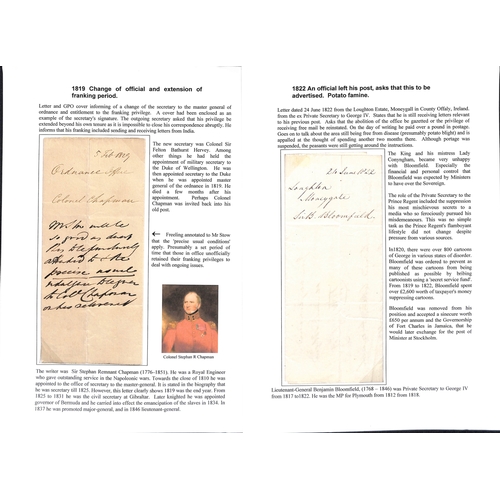 1819 Change of official and extension of
franking period.
Letter and GPO cover informing of a change of the secretary to the master general of
ordnance and entitlement to the franking privilege. A cover had been enclosed as an
example of the secretary's signature. The outgoing secretary asked that his privilege be
extended beyond his own tenure as it is impossible to close his correspondence abruptly. He
informs that his franking included sending and receiving letters from India.
Ordnance Office
Colonel Chapman
The new secretary was Colonel Sir
Felton Bathurst Hervey. Among
other things he had held the
appointment of military secretary to
the Duke of Wellington. He was
then appointed secretary to the Duke
when he was appointed master
general of the ordnance in 1819. He
died a few months after his
appointment. Perhaps Colonel
Chapman was invited back into his
old post.
← Freeling annotated to Mr Stow
that the 'precise usual conditions'
apply. Presumably a set period of
time that those in office unofficially
retained their franking privileges to
deal with ongoing issues.
Colonel Stephan R Chapman
The writer was Sir Stephan Remnant Chapman (1776–1851). He was a Royal Engineer
who gave outstanding service in the Napoleonic wars. Towards the close of 1810 he was
appointed to the office of secretary to the master-general. It is stated in the biography that
he was secretary till 1825. However, this letter clearly shows 1819 was the end year. From
1825 to 1831 he was the civil secretary at Gibraltar. Later knighted he was appointed
governor of Bermuda and he carried into effect the emancipation of the slaves in 1834. In
1837 he was promoted major-general, and in 1846 lieutenant-general.
1822 An official left his post, asks that this to be
advertised. Potato famine.
Letter dated 24 June 1822 from the Loughton Estate, Moneygall in County Offaly, Ireland.
from the ex Private Secretary to George IV. States that he is still receiving letters relevant
to his previous post. Asks that the abolition of the office be gazetted or the privilege of
receiving free mail be reinstated. On the day of writing he paid over a pound in postage.
Goes on to talk about the area still being free from disease (presumably potato blight) and is
appalled at the thought of spending another two months there. Although postage was
suspended, the peasants were still getting around the instructions.
24 June 1822
Loughton
Moneygall
Sir B. Bloomfield
The King and his mistress Lady
Conyngham, became very unhappy
with Bloomfield. Especially the
financial and personal control that
Bloomfield was expected by Ministers
to have over the Sovereign.
The role of the Private Secretary to the
Prince Regent included the suppressing
his most mischievous secrets to a
media who so ferociously pursued his
misdemeanours. This was no simple
task as the Prince Regent's flamboyant
lifestyle did not change despite
pressure from various sources.
In1820, there were over 800 cartoons
of George in various states of disorder.
Bloomfield was ordered to prevent as
many of these cartoons from being
published as possible by bribing
cartoonists using a 'secret service fund'.
From 1819 to 1822, Bloomfield spent
over £2,600 worth of taxpayer's money
suppressing cartoons.
Bloomfield was removed from his
position and accepted a sinecure worth
£650 per annum and the Governorship
of Fort Charles in Jamaica, that he
would later exchange for the post of
Minister at Stockholm.
Lieutenant-General Benjamin Bloomfield, (1768 – 1846) was Private Secretary to George IV
from 1817 to1822. He was the MP for Plymouth from 1812 from 1818.